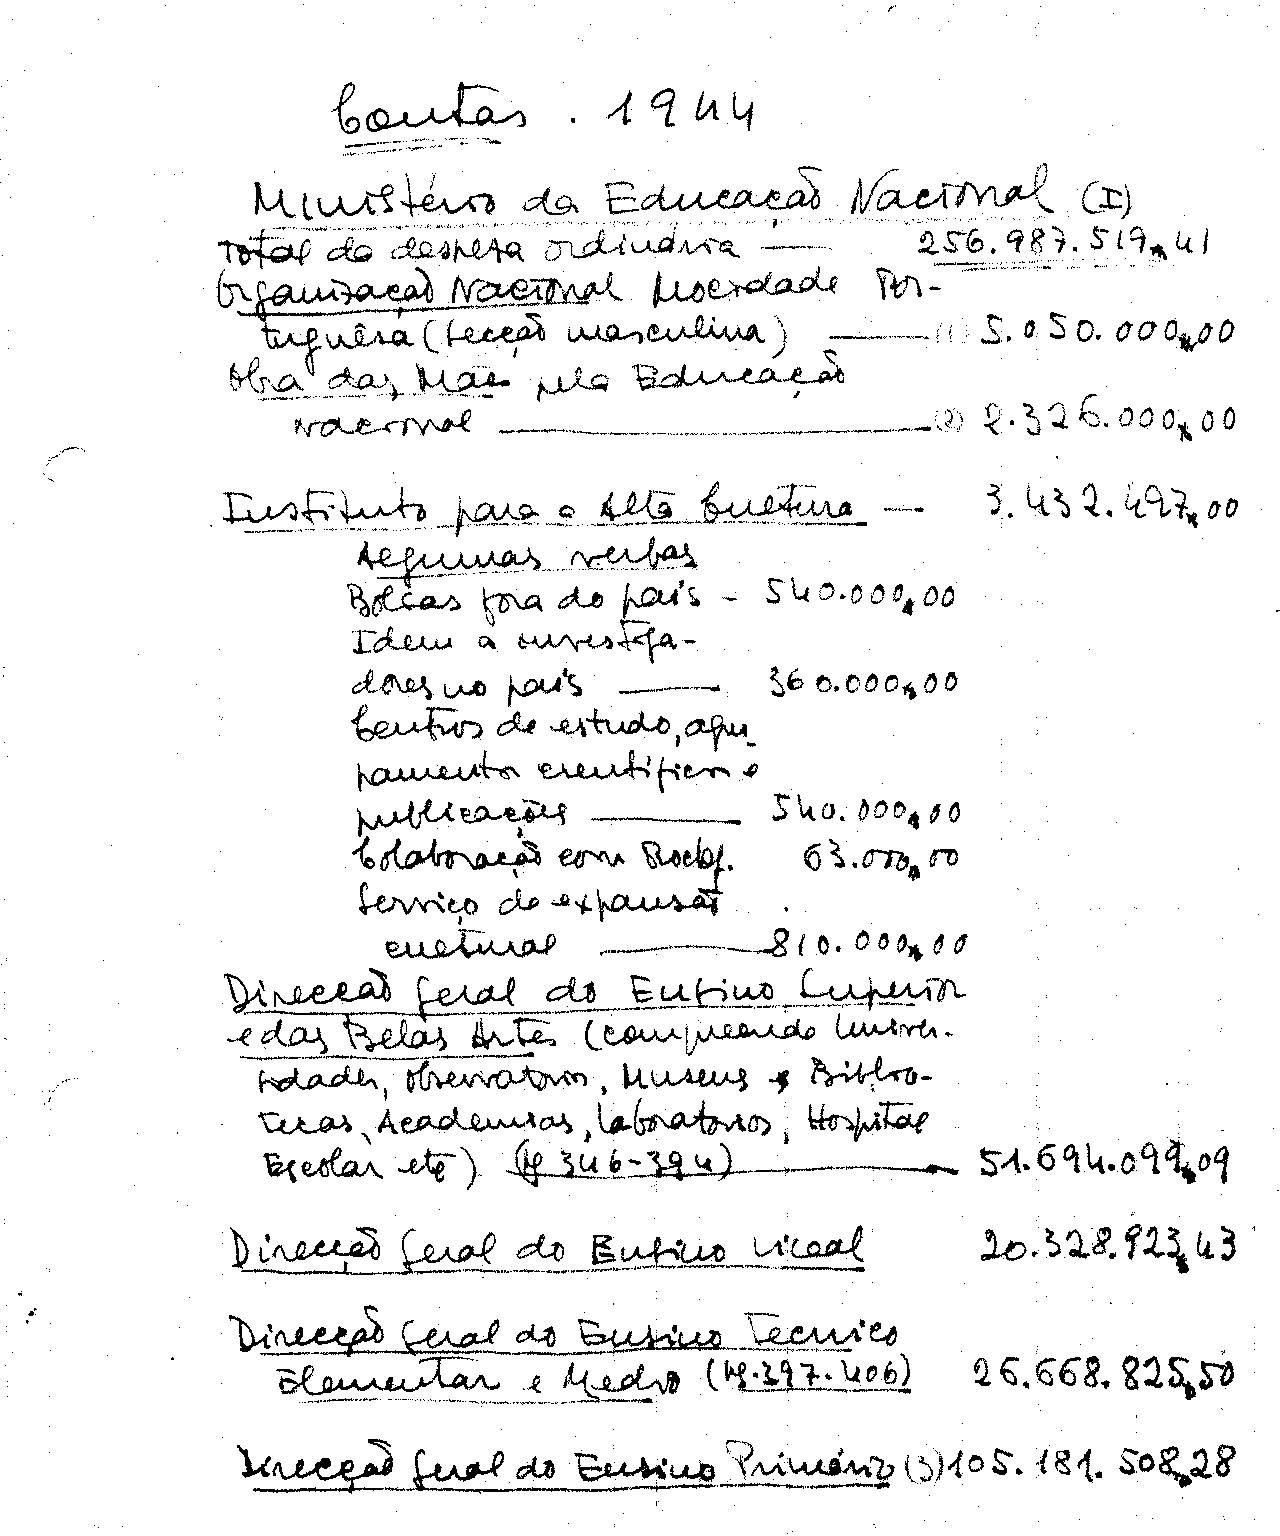 Contas. 1944
Ministério da Educação Nacional (I)
Total da despesa ordinária — 256.987.519$41
Organização Nacional Mocidade Por-
tuguêsa (secção masculina) — (1) 5.050.000$00
Obra das Mães pela Educação
Nacional — (2) 2.326.000$00
Instituto para a Alta Cultura — 3.432.497$00
Algumas verbas
Bolsas fora do país - 540.000$00
Idem a investiga-
dores no país — 360.000$00
Centros de estudo, agru-
pamentos científicos e
publicações — 540.000$00
Colaboração com Rockf. 63.000$00
Serviço de expansão
cultural — 810.000$00
Direcção Geral do Ensino Superior
e das Belas Artes (compreendo Univer-
sidades, Observatorios, Museus e Biblio-
tecas, Academias, Laboratorios, Hospital
Escolar etc) (pg 346-394) — 51.694.099$09
Direcção Geral do Ensino Liceal 20.328.923$43
Direcção Geral do Ensino Tecnico
Elementar e Medio (pg. 397.406) 26.668.825$50
Direcção Geral do Ensino Primário (3) 105.181.508$28